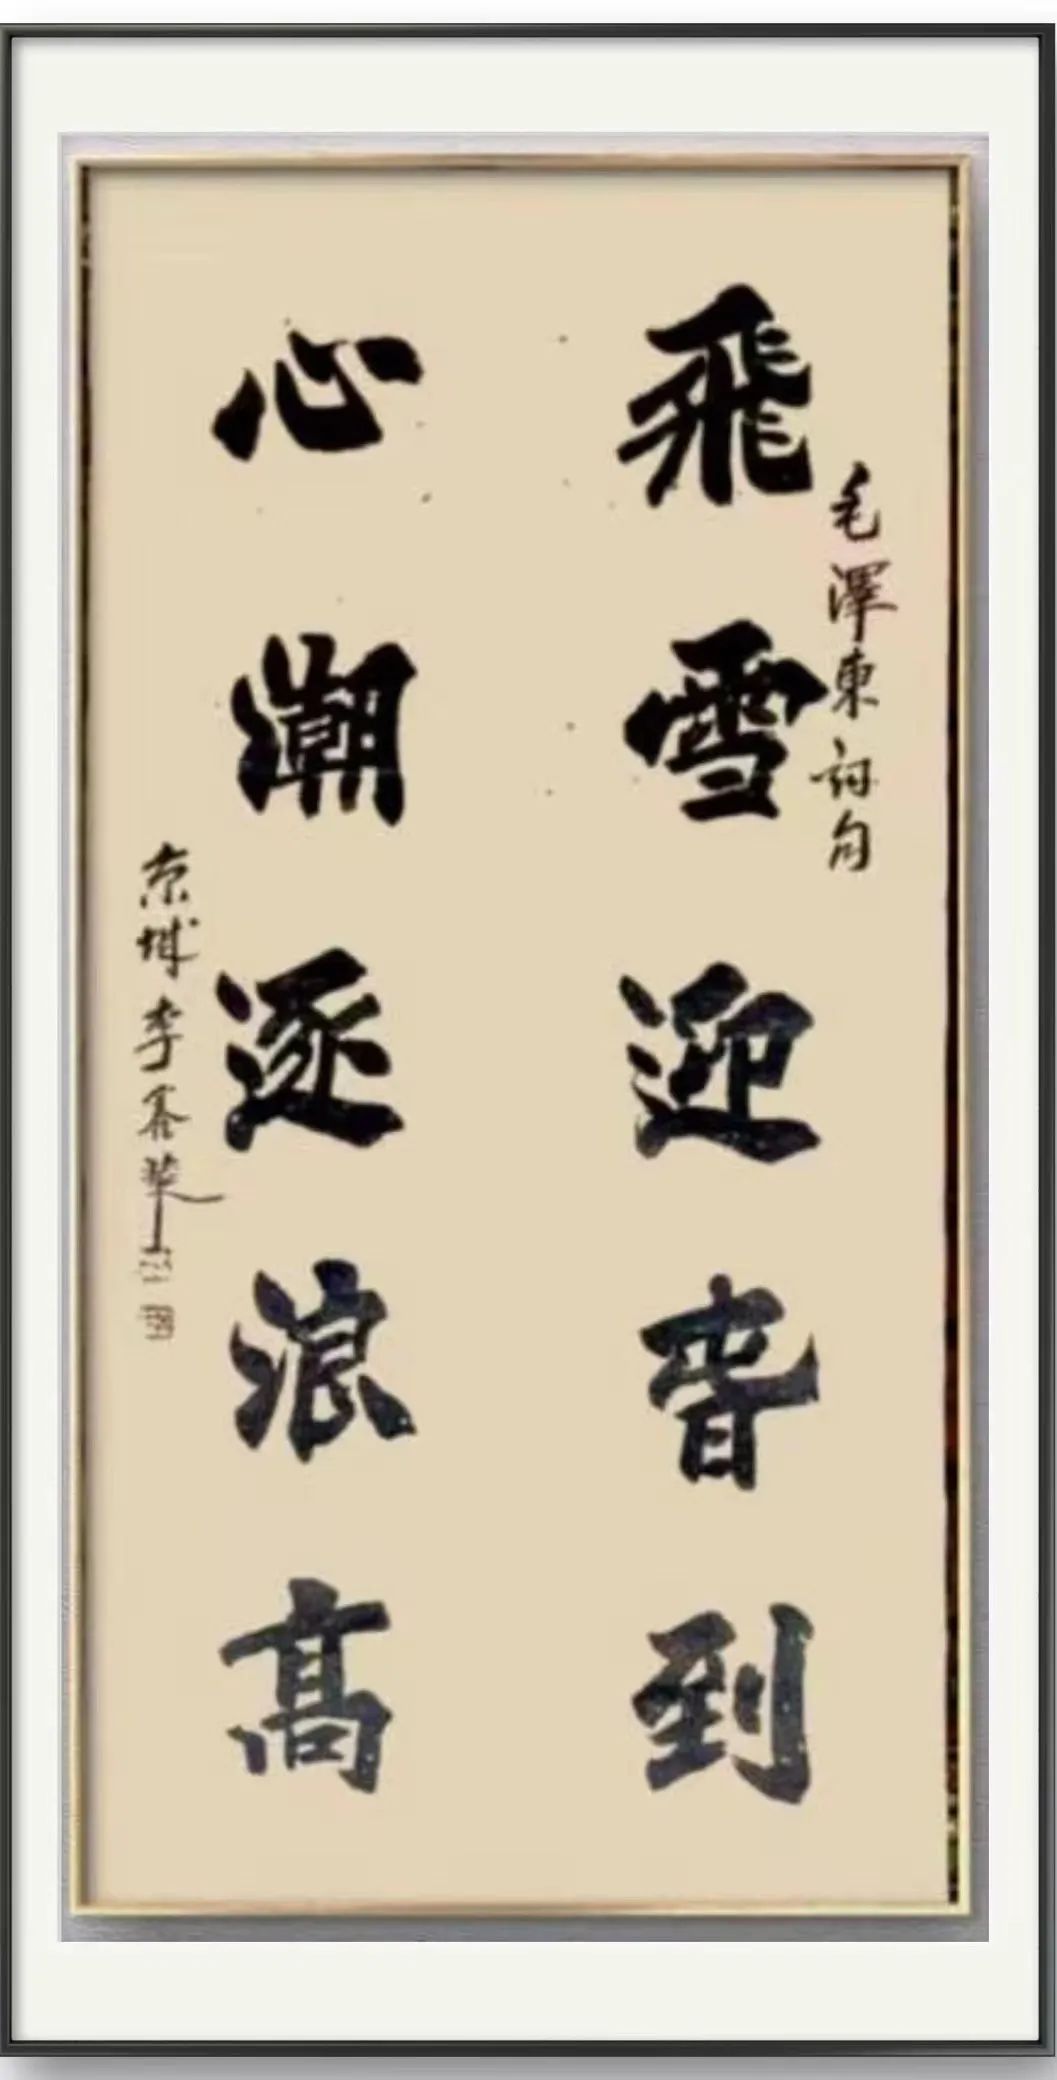 毛澤東詞句
飛雪迎春到
心潮逐浪高
京城李